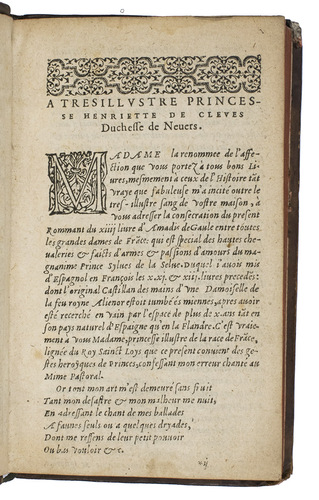 A TRESILLVSTRE PRINCES-
SE HENRIETTE DE CLEVES
Duchesse de Nevers.
MADAME la renommee de l'affe-
ction que vous portez à tous bons Li-
ures, mesmement à ceux de l'Histoire tāt
vraye que fabuleuse m'a incité outre le
tres-illustre sang de vostre maison, a
vous adresser la consecration du present
Rommant du xiiij liure d'Amadis de Gaule entre toutes
les grandes dames de Frāce: qui est special des hautes che-
ualeries & faicts d'armes & passions d'amours du ma-
gnanime Prince Sylues de la Selue. Duquel i'auois mis
d'Espagnol en François les x. xj. & xij. liures precedēs:
dont l'original Castillan des mains d'vne Damoiselle de
la feu royne Alienor estoit tumbé és miennes, apres auoir
esté recerché en vain par l'espace de plus de x. ans tāt en
son pays naturel d'Espaigne qu en la Flandre. C'est vraie-
ment a vous Madame, princesse illustre de la race de Frāce,
lignée du Roy Sainct Loys que ce present conuient des ge-
stes heroyques de Princes, confessant mon erreur chanté au
Mime Pastoral.
Or tout mon art m'est demeuré sans fruit
Tant mon desastre & mon malheur me nuit,
En adressant le chant de mes ballades
A faunes seuls ou a quelques dryades,
Dont me ressens de leur petit pouuoir
Ou bas vouloir & c.